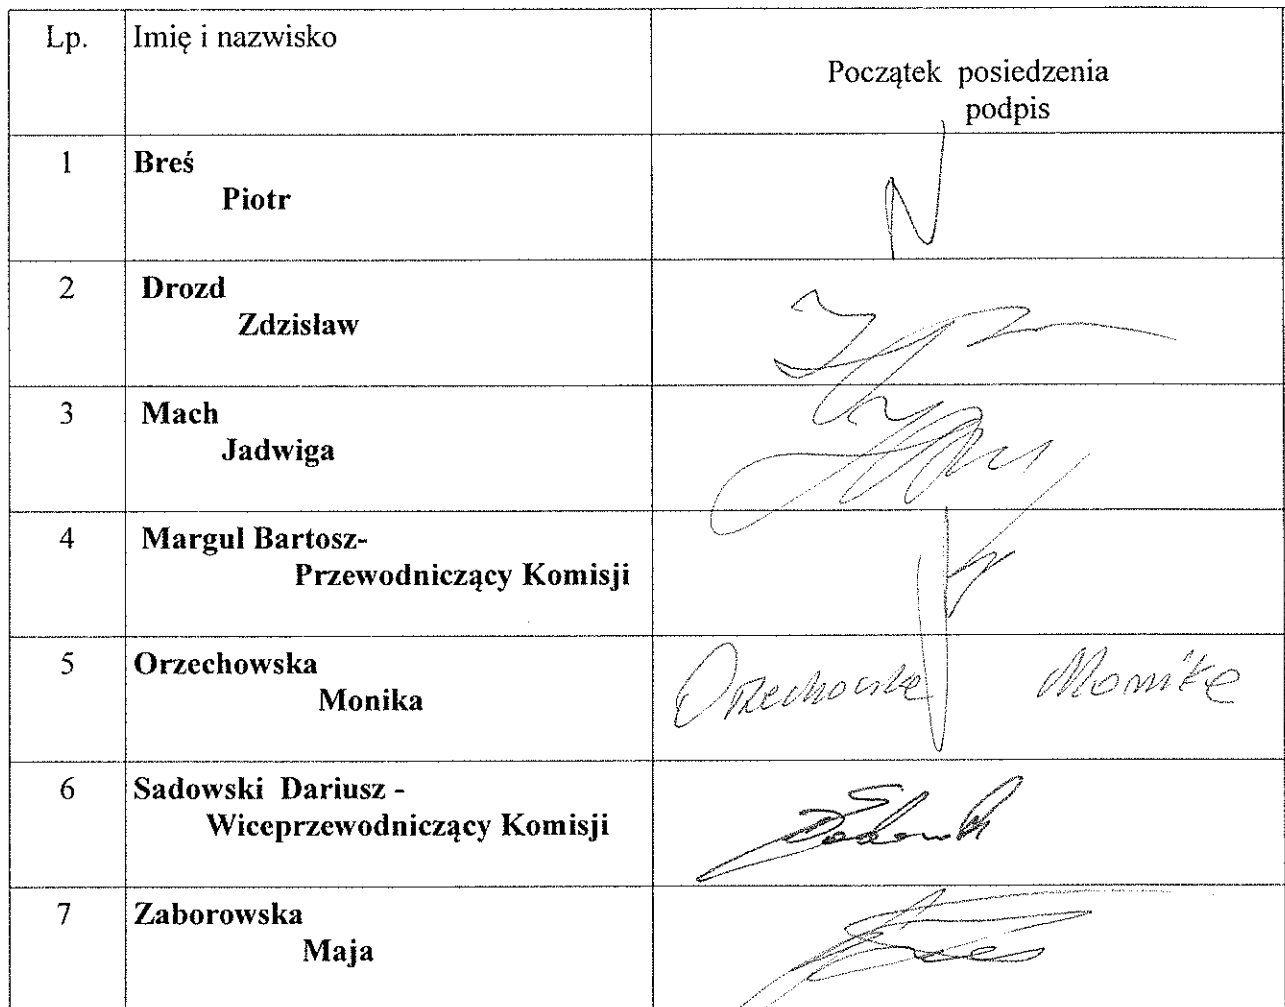 Lp.
Imię i nazwisko
Początek posiedzenia
podpis
1
Breś
Piotr
2
Drozd
Zdzisław
3
Mach
Jadwiga
4
Margul Bartosz-
Przewodniczący Komisji
5
Orzechowska
Monika
Orzechowska Monika
6
Sadowski Dariusz -
Wiceprzewodniczący Komisji
7
Zaborowska
Maja